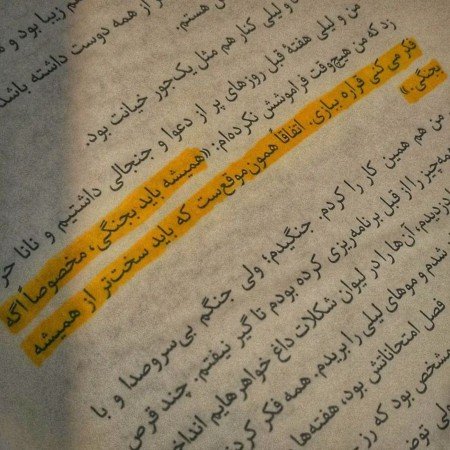 زیبا بود و
از همه دوست داشته باشد
هستم.
و لیلی کنار هم مثل یک‌جور خیانت بود.
من و لیلی هفتهٔ قبل روزهای پر از دعوا و جنجالی داشتیم و نانا حر
زد که من هیچ‌وقت فراموشش نکرده‌ام: «همیشه باید بجنگی، مخصوصاً اگه
فکر می‌کنی قراره ببازی. اتفاقاً همون‌موقع‌ست که باید سخت‌تر از همیشه
بجنگی.»
من هم همین کار را کردم. جنگیدم؛ ولی جنگم بی‌سروصدا و با
مه‌چیز را از قبل برنامه‌ریزی کرده بودم تا گیر نیفتم. چند قرص
دزدیدم. آن‌ها را در لیوان شکلات داغ خواهرهایم انداخ
شدم و موهای لیلی را بریدم. همه فکر کرد
فصل امتحاناتش بود، هفته‌ها
مشخص بود که رز
ولی توض